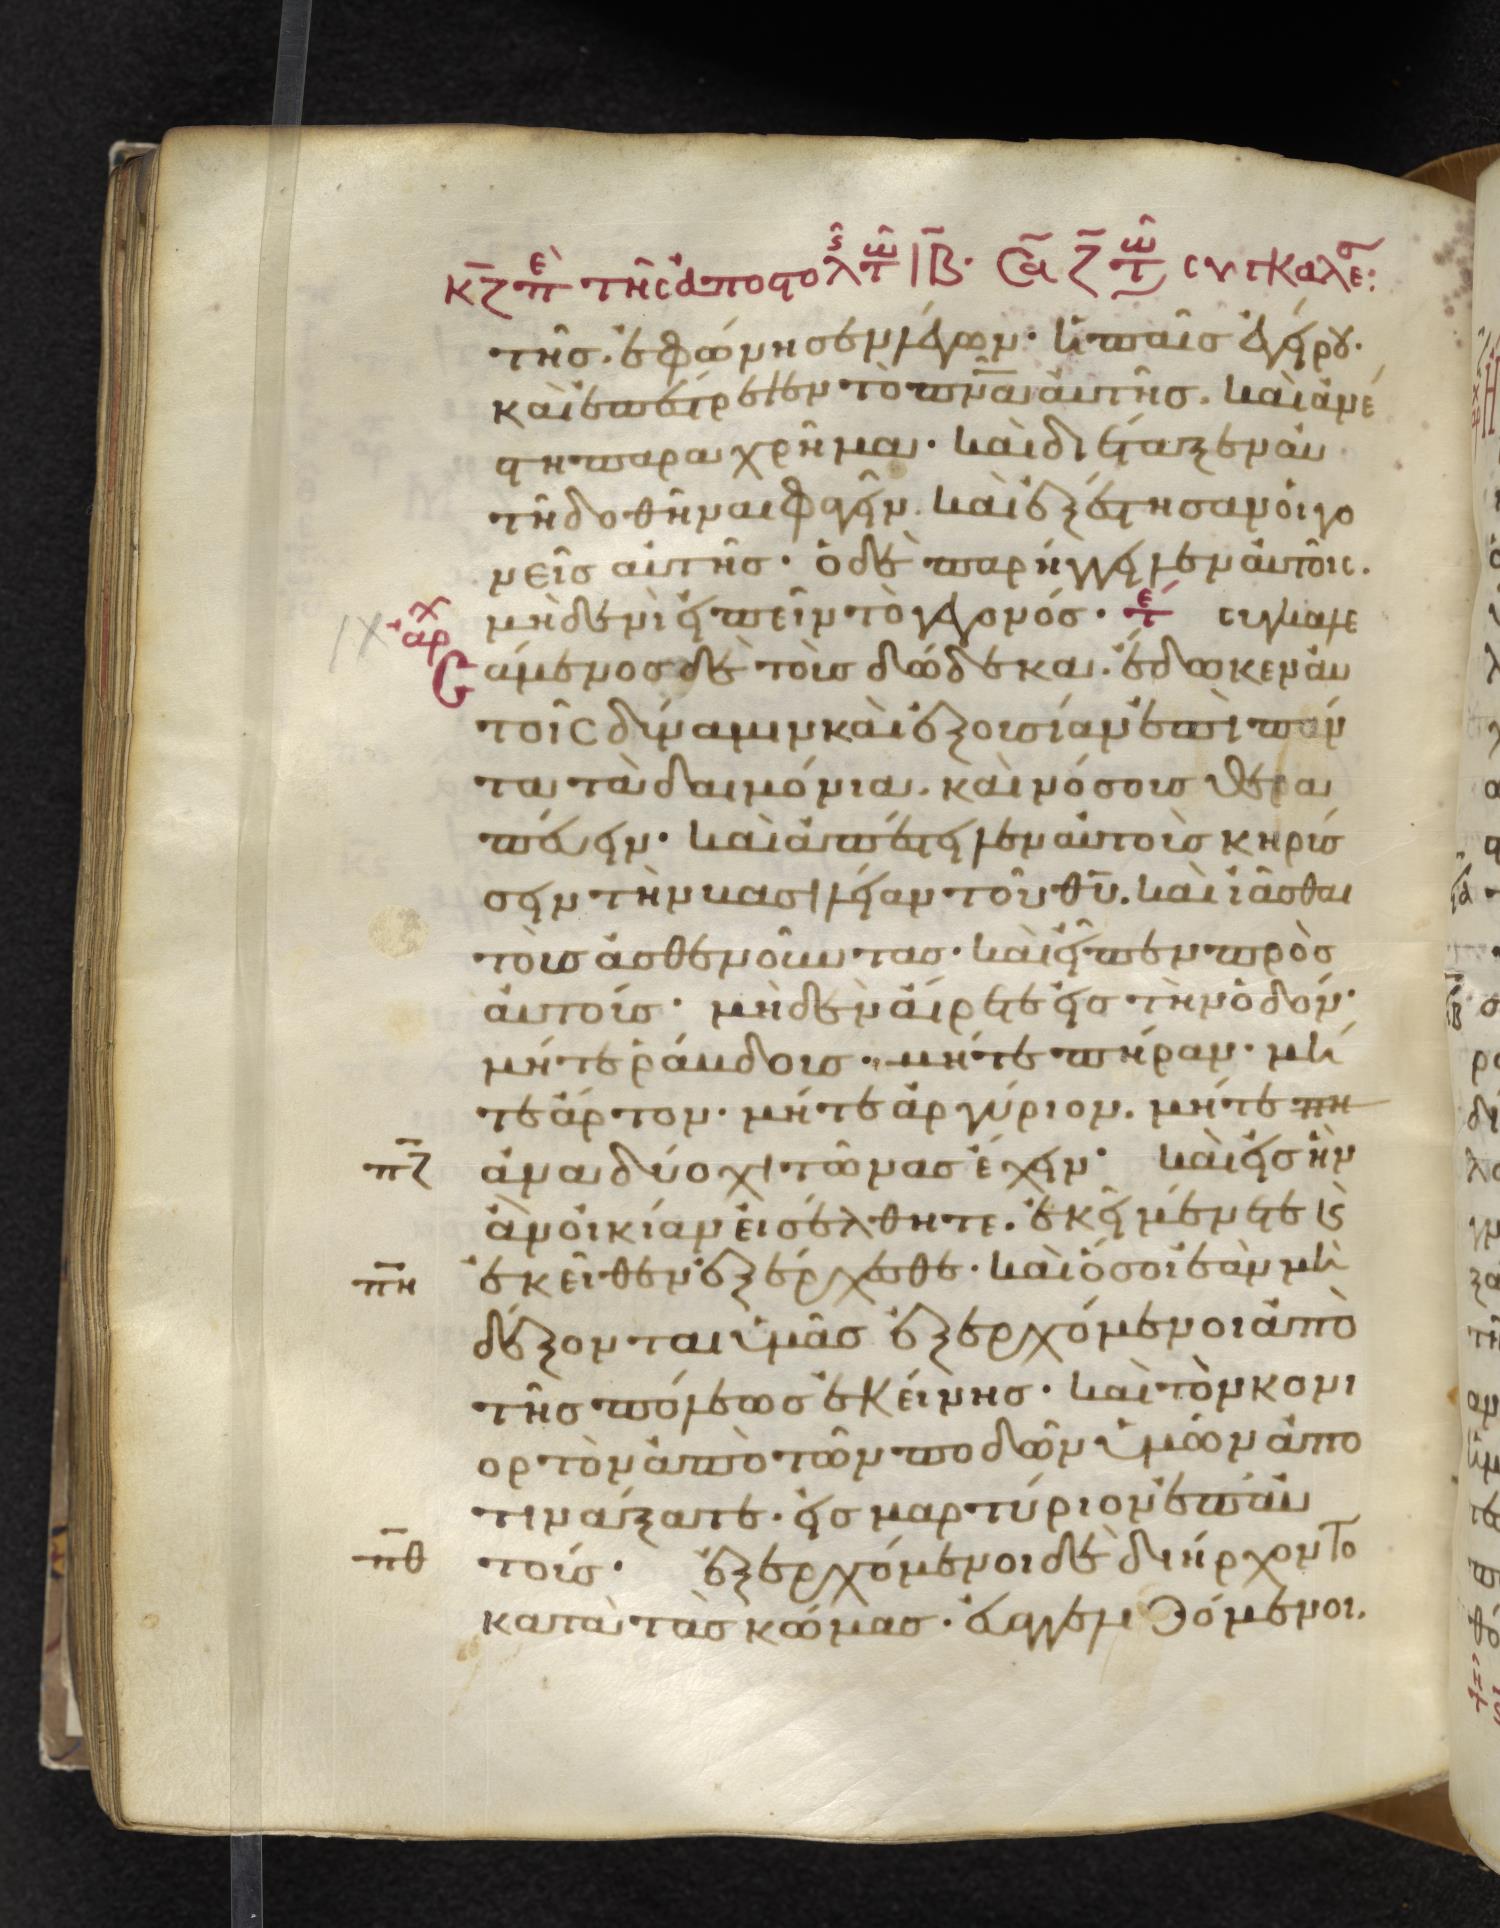 κζ πε τῆς ἀποστολῆς τω ιβ· Σα ζ τω συγκαλεσ:
της. ἐφώνησεν λέγων· ἡ παῖς ἐγείρου.
καὶ ἐπέστρεψεν τὸ πνα αὐτῆς. καὶ ἀνέ
στη παραχρῆμα· καὶ διέταξεν αὐ
τῇ δοθῆναι φαγεῖν. καὶ ἐξέστησαν οἱ γο
νεῖς αὐτῆς· ὁ δὲ παρήγγειλεν αὐτοῖς.
μηδενὶ εἰπεῖν τὸ γεγονός· τε συγκαλε
αρχ σάμενος δὲ τοὺς δώδεκα. ἔδωκεν αὐ
τοῖς δύναμιν καὶ ἐξουσίαν ἐπὶ πάν
τα τὰ δαιμόνια. καὶ νόσους θερα
πεύειν· καὶ ἀπέστειλεν αὐτοὺς κηρύσ
σειν τὴν βασιλείαν τοῦ θυ. καὶ ἰᾶσθαι
τοὺς ἀσθενοῦντας· καὶ εἶπεν πρὸς
αὐτούς· μηδὲν αἴρετε εἰς τὴν ὁδόν·
μήτε ῥάβδους· μήτε πήραν· μή
τε ἄρτον· μήτε ἀργύριον. μήτε πη
πζ ἀνα δύο χιτῶνας ἔχειν· καὶ εἰς ἣν
ἂν οἰκίαν εἰσέλθητε. ἐκεῖ μένετε κ
πη ἐκεῖθεν ἐξέρχεσθε· καὶ ὅσοι ἐὰν μὴ
δέξονται ὑμᾶς ἐξερχόμενοι ἀπὸ
τῆς πόλεως ἐκείνης· καὶ τὸν κονι
ορτὸν ἀπὸ τῶν ποδῶν ὑμῶν ἀπο
τινάξατε· εἰς μαρτύριον ἐπ' αὐ
πθ τούς· ἐξερχόμενοι δὲ διήρχοντο
κατὰ τὰς κώμας· εὐαγγελιζόμενοι.